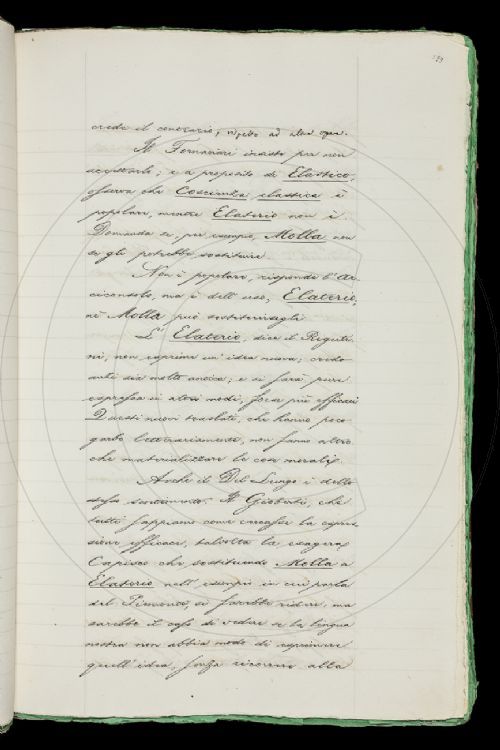 crede il contrario, rispetto ad altre opere.
Il Fornaciari insiste per non
accettarlo; e a proposito di Elastico,
osserva che Coscienza elastica è
popolare, mentre Elaterio non è.
Domanda se, per esempio, Molla non
se gli potrebbe sostituire.
Non è popolare, risponde l'Ar-
ciconsolo, ma è dell'uso, Elaterio;
nè Molla può sostituirsegli.
L'Elaterio, dice il Riguti-
ni, non esprime un'idea nuova; credo
anzi sia molto antica; e si farà pure
espressa in altri modi, forse più efficaci.
Questi nuovi traslati, che hanno poco
garbo letterariamente, non fanno altro
che materializzare le cose morali.
Anche il Del Lungo è dello
stesso sentimento. Il Gioberti, che
tutti sappiamo come cercasse la espres-
sione efficace, talvolta la esagera.
Capisco che sostituendo Molla a
Elaterio nell'esempio in cui parla
del Piemonte, si farebbe ridere; ma
sarebbe il caso di vedere se la lingua
nostra non abbia modo di esprimere
quell'idea, senza ricorrere alla